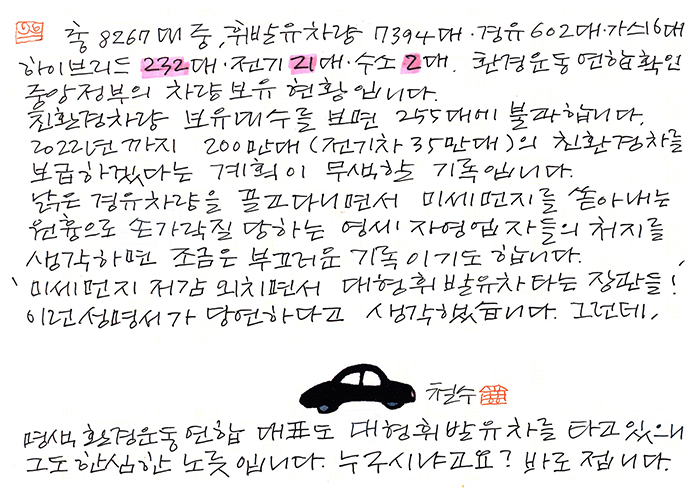 총 8267대 중, 휘발유차량 7394대·경유 602대·가스16대
하이브리드 232대·전기 21대·수소 2대. 환경운동연합확인
중앙정부의 차량보유 현황입니다.
친환경차량 보유대수를 보면 255대에 불과합니다.
2022년까지 200만대(전기차 35만대)의 친환경차를
보급하겠다는 계획이 무색할 기록입니다.
낡은 경유차량을 끌고다니면서 미세먼지를 쏟아내는
원흉으로 손가락질 당하는 영세 자영업자들의 처지를
생각하면 조금은 부끄러운 기록이기도 합니다.
'미세먼지 저감 외치면서 대형휘발유차 타는 장관들!'
이런성명서가 당연하다고 생각했습니다. 그런데,
철수
명색 환경운동연합 대표도 대형휘발유차를 타고있으니
그도 한심한 노릇입니다. 누구시냐고요? 바로 접니다.